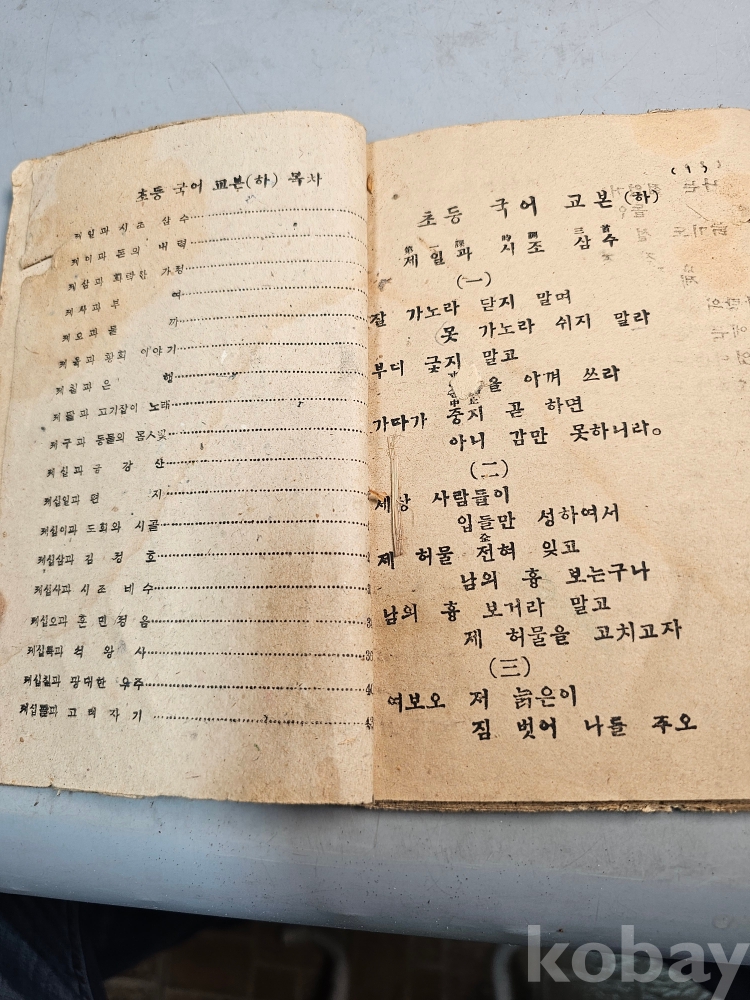 초등 국어 교본(하) 목차
제일과 시조 삼수
제이과 돈의 내력
제삼과 화락한 가정
제사과 부여
제오과 물 까
제육과 황희 이야기
제칠과 은행
제팔과 고기잡이 노래
제구과 동물의 몸빛
제십과 금강산
제십일과 편지
제십이과 도회와 시골
제십삼과 김정호
제십사과 시조 네수
제십오과 훈민정음
제십륙과 석왕사
제십칠과 광대한 우주
제십팔과 고려자기 43
(1)
초등 국어 교본(하)
第一課 時調 三首
제일과 시조 삼수
(一)
잘 가노라 닫지 말며
못 가노라 쉬지 말라
부디 긏지 말고
을 아껴 쓰라
가다가 중지 곧 하면
아니 감만 못하니라。
(二)
세상 사람들이
입들만 성하여서
제 허물 전혀 잊고
남의 흉 보는구나
남의 흉 보거라 말고
제 허물을 고치고자
(三)
여보오 저 늙은이
짐 벗어 나를 주오
kobay